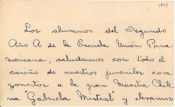 Los alumnos del Segundo
Año A de la Escuela Unión Pana-
mericana, saludamos con todo el
cariño de nuestros juveniles cora
zoncitos a la gran Maestra Chile
na "Gabriela Mistral" y elevamos